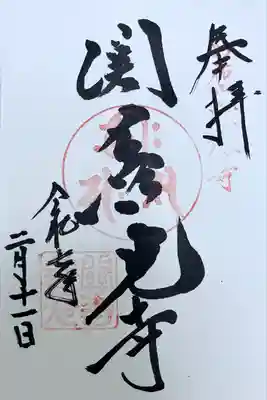 奉拝
関善光寺
令和年
二月十一日